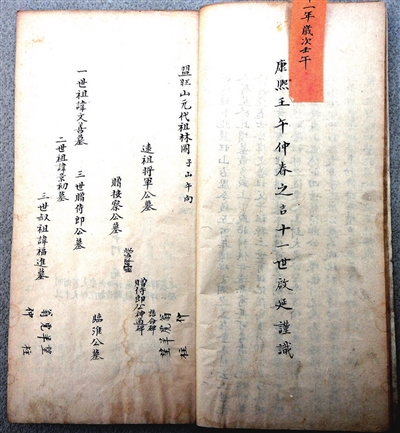 十一年歲次壬午
康熙壬午仲春之吉十一世啟延謹識
盟旺山元代祖林圖 子山午向
遠祖將軍公墓
贈按察公墓
贈侍郎公神道碑
臨淮公墓
三世贈侍郎公墓
一世祖諱文善墓
二世祖諱景初墓
三世叔祖諱福進墓
仲柱